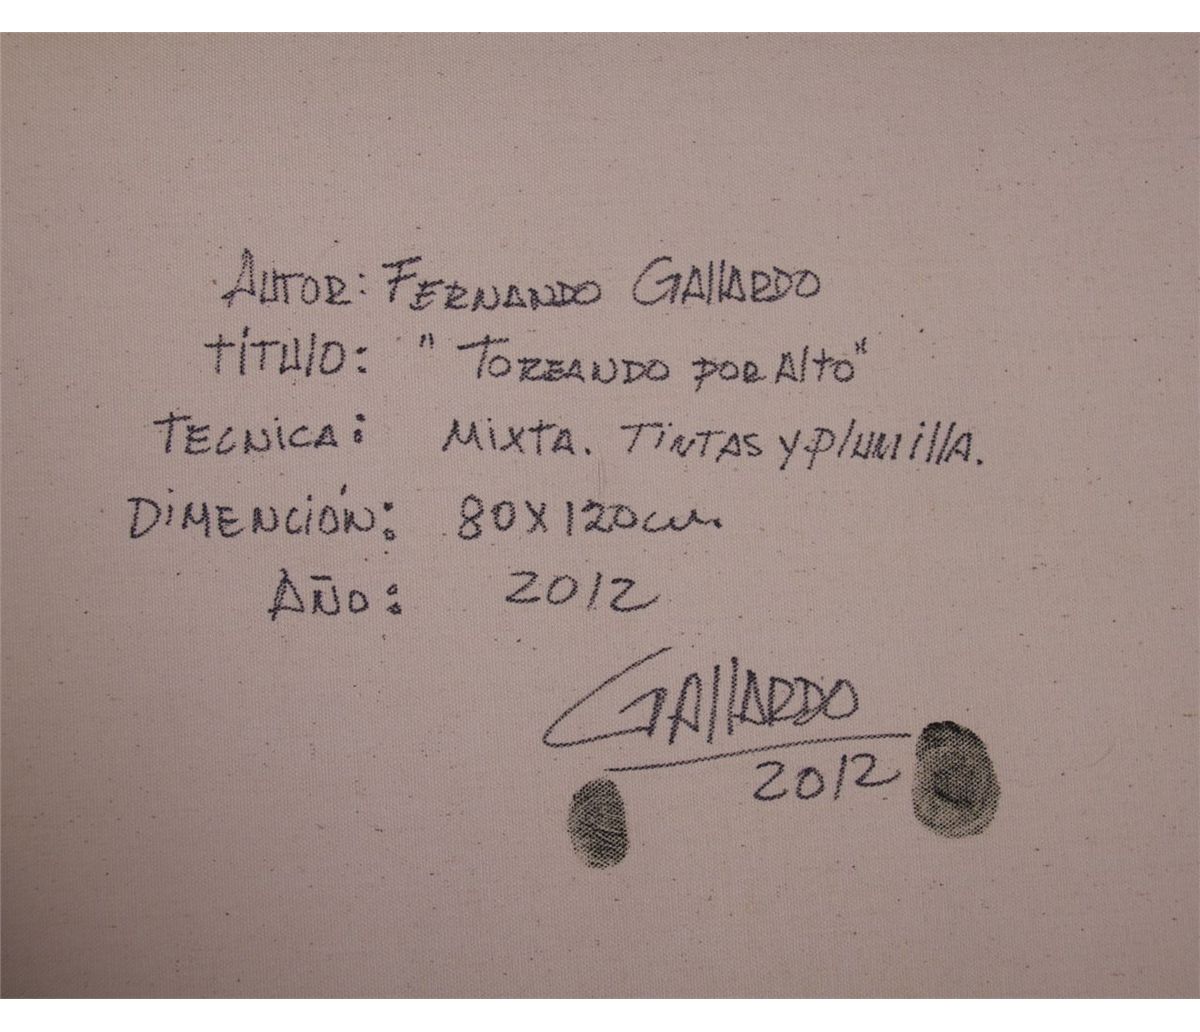 AUTOR: FERNANDO GALLARDO
TÍTULO: "TOREANDO POR ALTO"
TECNICA: MIXTA. TINTAS Y PLUMILLA.
DIMENCIÓN: 80X120cm.
AÑO: 2012
GALLARDO
2012